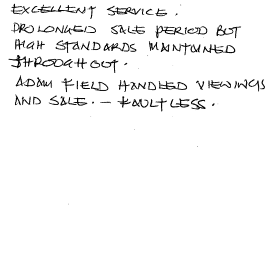 EXCELLENT SERVICE.
PROLONGED SALE PERIOD BUT
HIGH STANDARDS MAINTAINED
THROUGHOUT.
ADAM FIELD HANDLED VIEWINGS
AND SALE. – FAULTLESS.